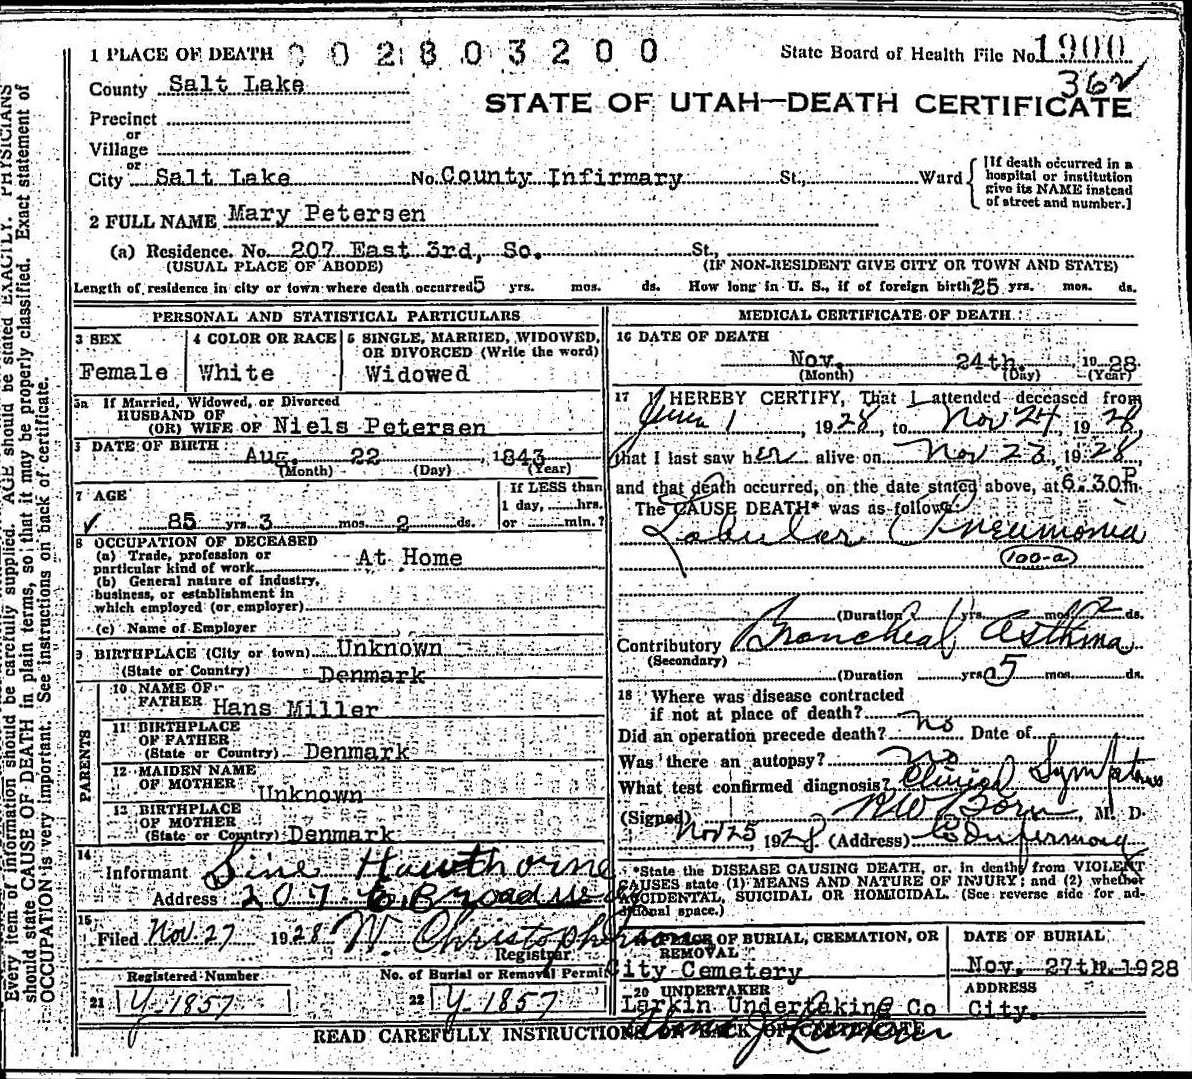 1 PLACE OF DEATH 002803200 State Board of Health File No. 1900
362
County Salt Lake
STATE OF UTAH—DEATH CERTIFICATE
Precinct
or
Village
or
City Salt Lake No. County Infirmary St., Ward
[If death occurred in a
hospital or institution
give its NAME instead
of street and number.]
2 FULL NAME Mary Petersen
(a) Residence. No. 207 East 3rd, So. St.,
(USUAL PLACE OF ABODE) (IF NON-RESIDENT GIVE CITY OR TOWN AND STATE)
Length of residence in city or town where death occurred 5 yrs. mos. ds. How long in U. S., if of foreign birth 25 yrs. mos. ds.
PERSONAL AND STATISTICAL PARTICULARS
3 SEX
Female
4 COLOR OR RACE
White
5 SINGLE, MARRIED, WIDOWED,
OR DIVORCED (Write the word)
Widowed
5a If Married, Widowed, or Divorced
HUSBAND OF
(OR) WIFE OF Niels Petersen
6 DATE OF BIRTH
Aug. 22, 1843
(Month) (Day) (Year)
7 AGE
85 yrs. 3 mos. 2 ds.
If LESS than
1 day, hrs.
or min.?
8 OCCUPATION OF DECEASED
(a) Trade, profession or
particular kind of work At Home
(b) General nature of industry,
business, or establishment in
which employed (or employer)
(c) Name of Employer
9 BIRTHPLACE (City or town) Unknown
(State or Country) Denmark
PARENTS
10 NAME OF
FATHER Hans Miller
11 BIRTHPLACE
OF FATHER
(State or Country) Denmark
12 MAIDEN NAME
OF MOTHER Unknown
13 BIRTHPLACE
OF MOTHER
(State or Country) Denmark
14
Informant Sine Hawthorne
Address 207 E. Broadway
15
Filed Nov. 27 1928 W. Christopherson
Registrar
Registered Number
21 Y-1857
No. of Burial or Removal Permit
22 Y-1857
MEDICAL CERTIFICATE OF DEATH
16 DATE OF DEATH
Nov. 24th. 1928
(Month) (Day) (Year)
17 I HEREBY CERTIFY, That I attended deceased from
June 1, 1928, to Nov 24, 1928,
that I last saw her alive on Nov 23, 1928,
and that death occurred, on the date stated above, at 6.30 P m.
The CAUSE DEATH* was as follows:
Lobular Pneumonia
100-a
(Duration yrs. mos. 2 ds.
Contributory Broncheal Asthma
(Secondary)
(Duration yrs. 5 mos. ds.
18 Where was disease contracted
if not at place of death?
Did an operation precede death? no Date of
Was there an autopsy? no
What test confirmed diagnosis? Clinical Symptoms
(Signed) , M. D.
Nov 25, 1928 (Address) Co Infirmary
*State the DISEASE CAUSING DEATH, or, in deaths from VIOLENT
CAUSES state (1) MEANS AND NATURE OF INJURY; and (2) whether
ACCIDENTAL, SUICIDAL OR HOMICIDAL. (See reverse side for ad-
ditional space.)
19 PLACE OF BURIAL, CREMATION, OR
REMOVAL
City Cemetery
DATE OF BURIAL
Nov. 27th. 1928
20 UNDERTAKER
Larkin Undertaking Co
ADDRESS
City.
READ CAREFULLY INSTRUCTIONS ON BACK OF CERTIFICATE
Every item of information should be carefully supplied. AGE should be stated EXACTLY. PHYSICIANS
should state CAUSE OF DEATH in plain terms, so that it may be properly classified. Exact statement of
OCCUPATION is very important. See instructions on back of certificate.